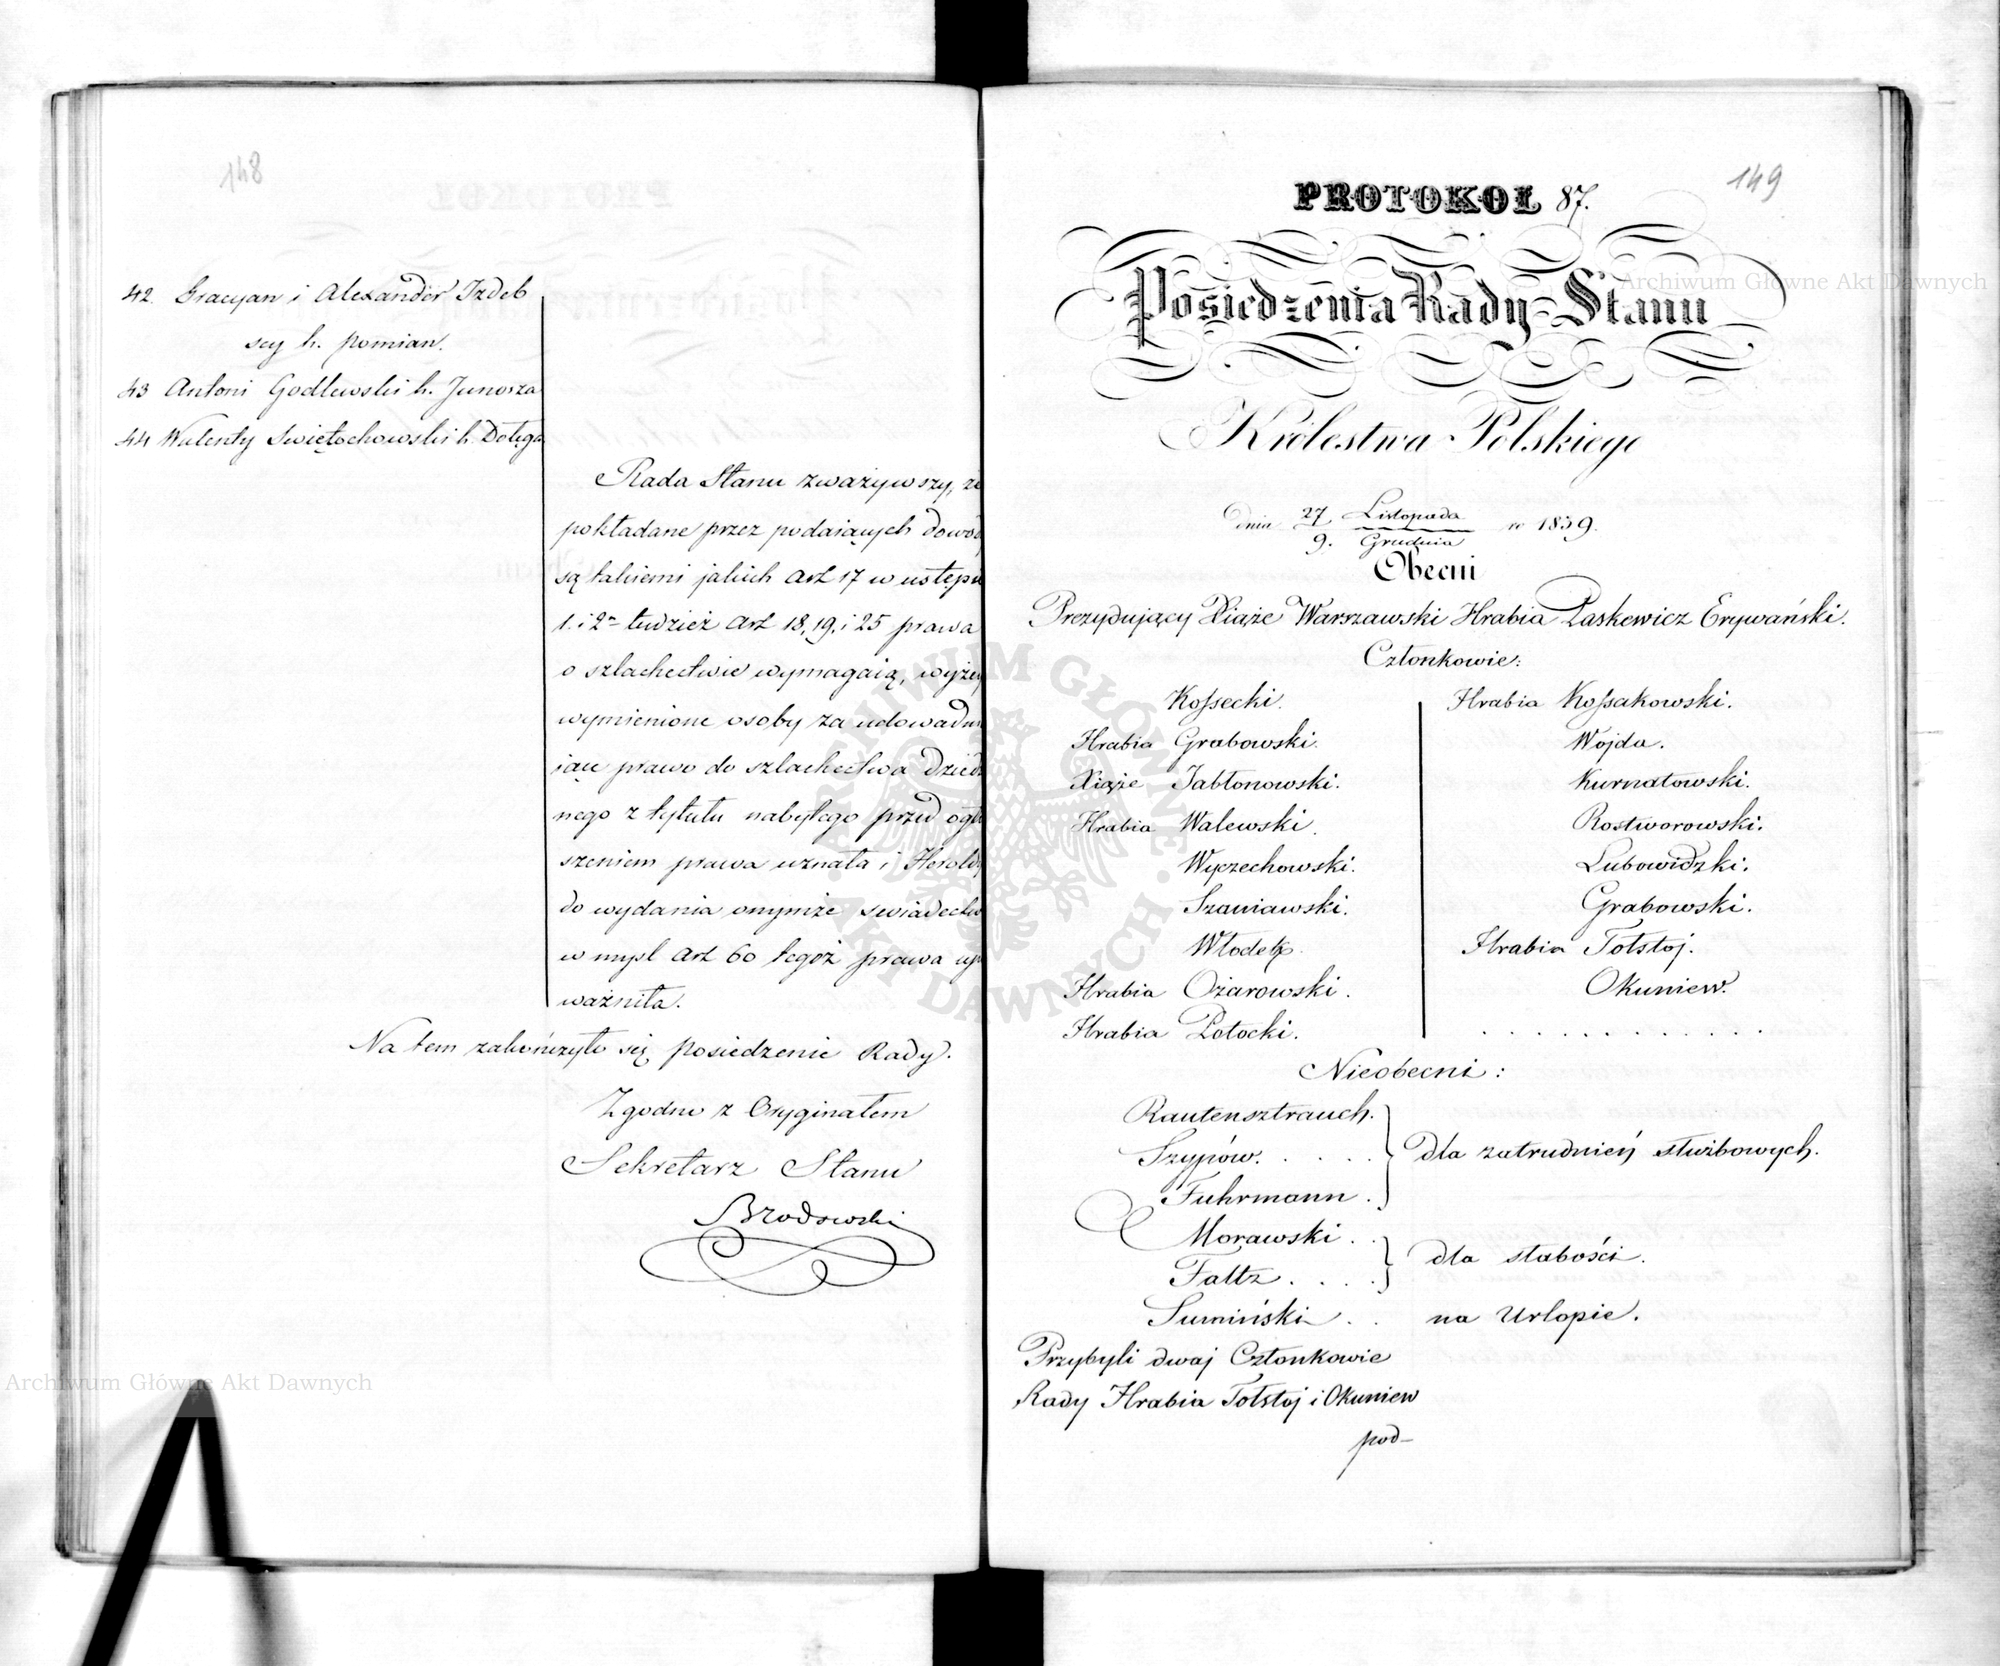 148
42. Gracyan i Alexander Izdeb
scy h. pomian.
43 Antoni Godlewski h. Junosza
44 Walenty Swiętochowski h. Dołęga
Rada Stanu zważywszy, że
pokładane przez podaiących dowod
są takiemi jakich Art 17 w ustępie
1. i 2m tudzież Art 18, 19, i 25 prawa
o szlachectwie wymagaią, wyżey
wymienione osoby za udowadni
iące prawo do szlachectwa dziedz
nego z tytułu nabytego przed ogło
szeniem prawa uznała i Herold
do wydania onymże swiadectw
w mysl Art 60 tegoż prawa upo
ważniła.
Na tem zakończyło się posiedzenie Rady.
Zgodno z Oryginałem
Sekretarz Stanu
Brodowski
149
PROTOKOŁ 87.
Posiedzenia Rady Stanu
Królestwa Polskiego
dnia 27 Listopada / 9. Grudnia r 1839.
Obecni
Prezydujący Xiąże Warszawski Hrabia Paskewicz Erywański.
Członkowie:
Kossecki. Hrabia Kossakowski.
Hrabia Grabowski. Wojda.
Xiąże Jabłonowski. Kurnatowski.
Hrabia Walewski. Rostworowski.
Wyczechowski. Lubowidzki.
Szaniawski. Grabowski.
Włodek. Hrabia Tołstoj.
Hrabia Ożarowski. Okuniew.
Hrabia Potocki. . . . . . . . . . . . .
Nieobecni:
Rautensztrauch.
Szypów. . . . . dla zatrudnień służbowych.
Fuhrmann .
Morawski . .
Faltz . . . . dla słabości.
Sumiński . . na Urlopie.
Przybyli dwaj Członkowie
Rady Hrabia Tołstoj i Okuniew
pod-
Archiwum Główne Akt Dawnych
Archiwum Główne Akt Dawnych
ARCHIWUM GŁÓWNE AKT DAWNYCH